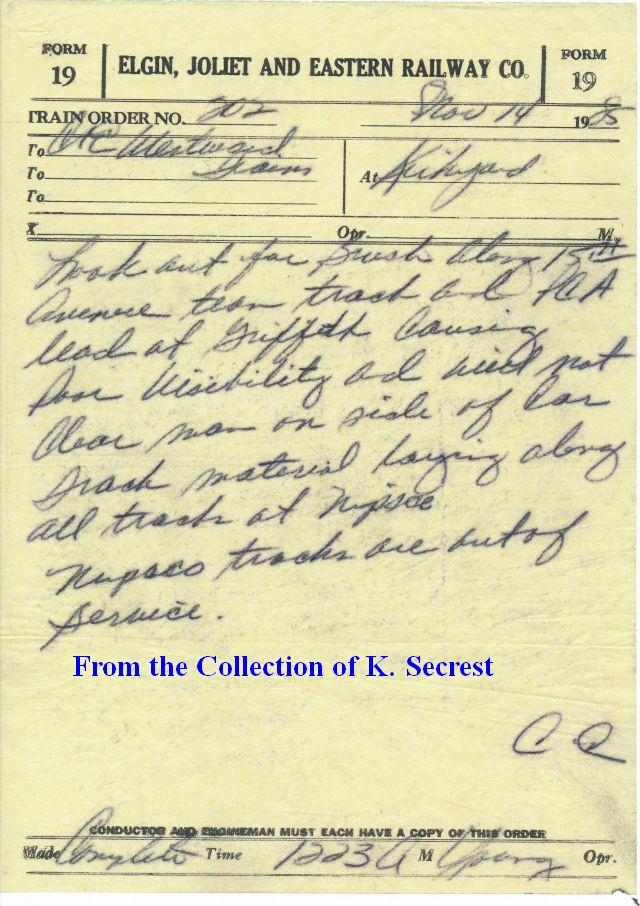 FORM 19 ELGIN, JOLIET AND EASTERN RAILWAY CO. FORM 19
TRAIN ORDER NO. 202 Nov 14 1985
To C&E Westward
To Trains At Kirkyard
To
X Opr. M.
Look out for Brush along 15th
Avenue team track and PCA
lead at Griffith Causing
Poor Visibility and will not
Clear man on side of Car
Track material laying along
all tracks at Nipsco
Nipsco tracks are out of
Service.
From the Collection of K. Secrest
Made Complete Time 1223 A M Young Opr.
CONDUCTOR AND ENGINEMAN MUST EACH HAVE A COPY OF THIS ORDER